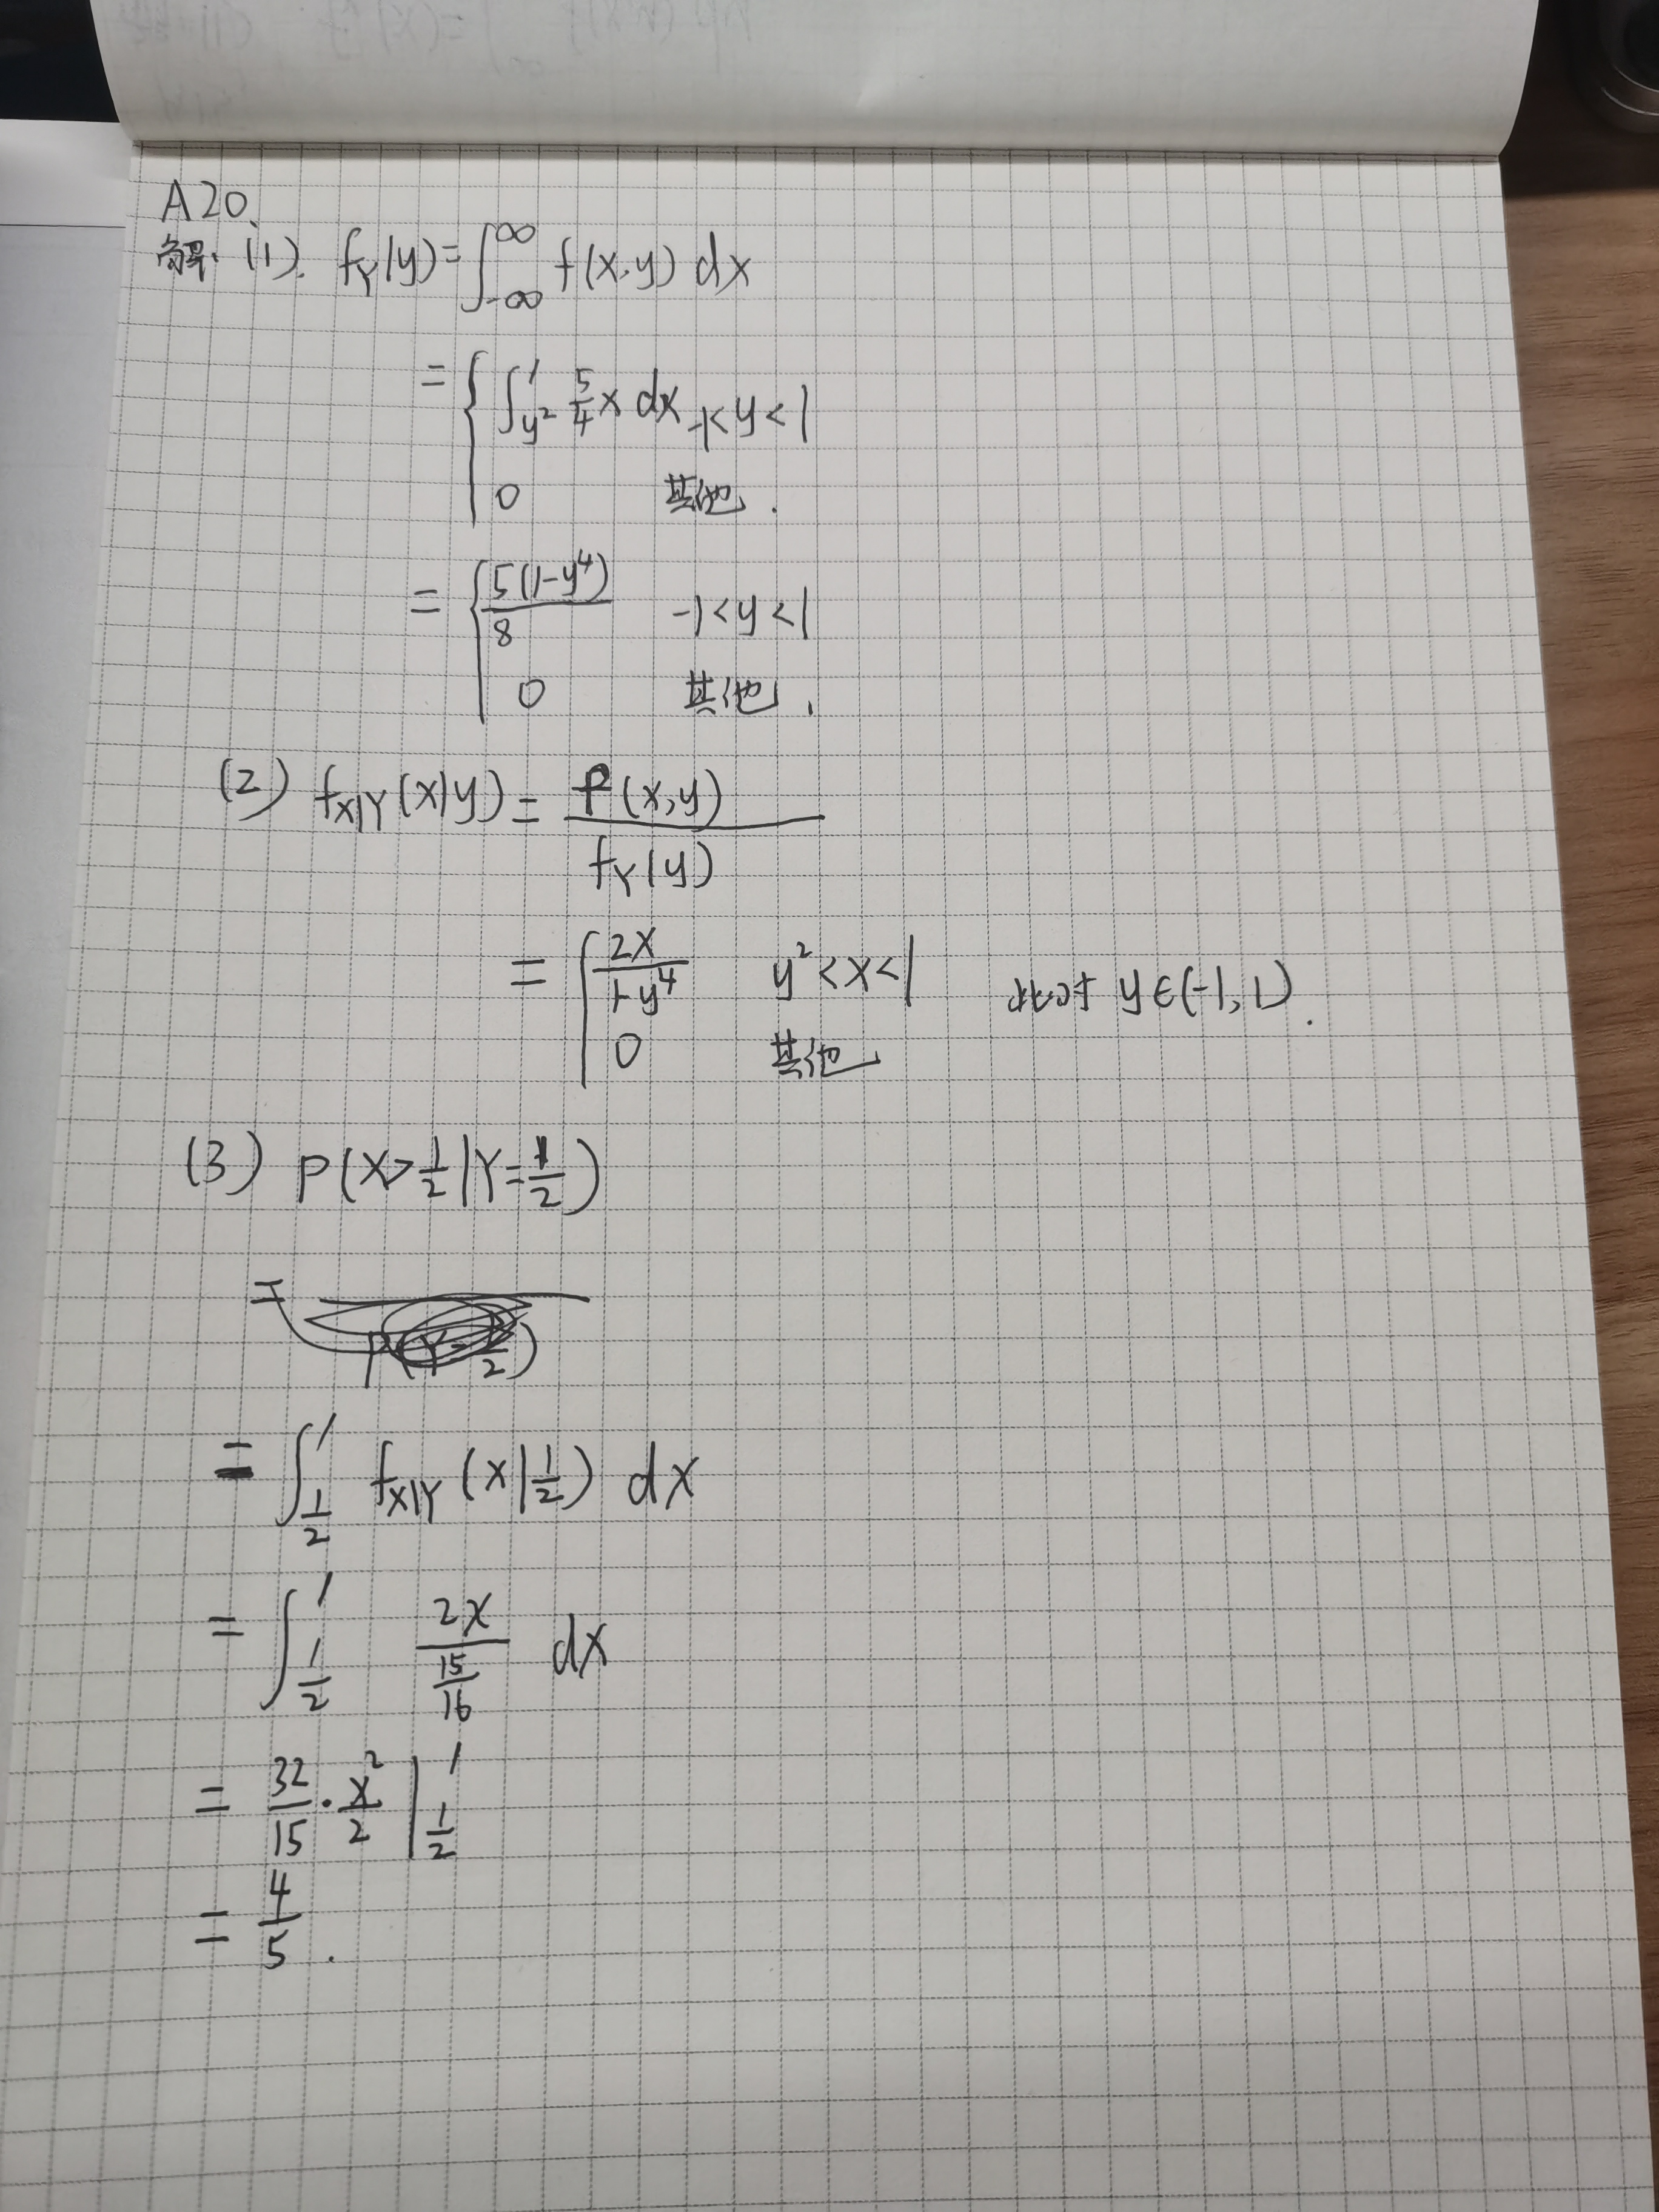 A20.
解: (1). f_Y(y) = ∫_{-∞}^{∞} f(x,y) dx
= { ∫_{y²}^{1} 5/4 x dx -1<y<1
0 其他.
= { 5(1-y⁴)/8 -1<y<1
0 其他.
(2) f_{X|Y}(x|y) = f(x,y)/f_Y(y)
= { 2x/(1-y⁴) y²<x<1 此时 y∈(-1,1).
0 其他
(3) P(X>1/2|Y=1/2)
= ∫_{1/2}^{1} f_{X|Y}(x|1/2) dx
= ∫_{1/2}^{1} 2x/(15/16) dx
= 32/15 · x²/2 |_{1/2}^{1}
= 4/5.